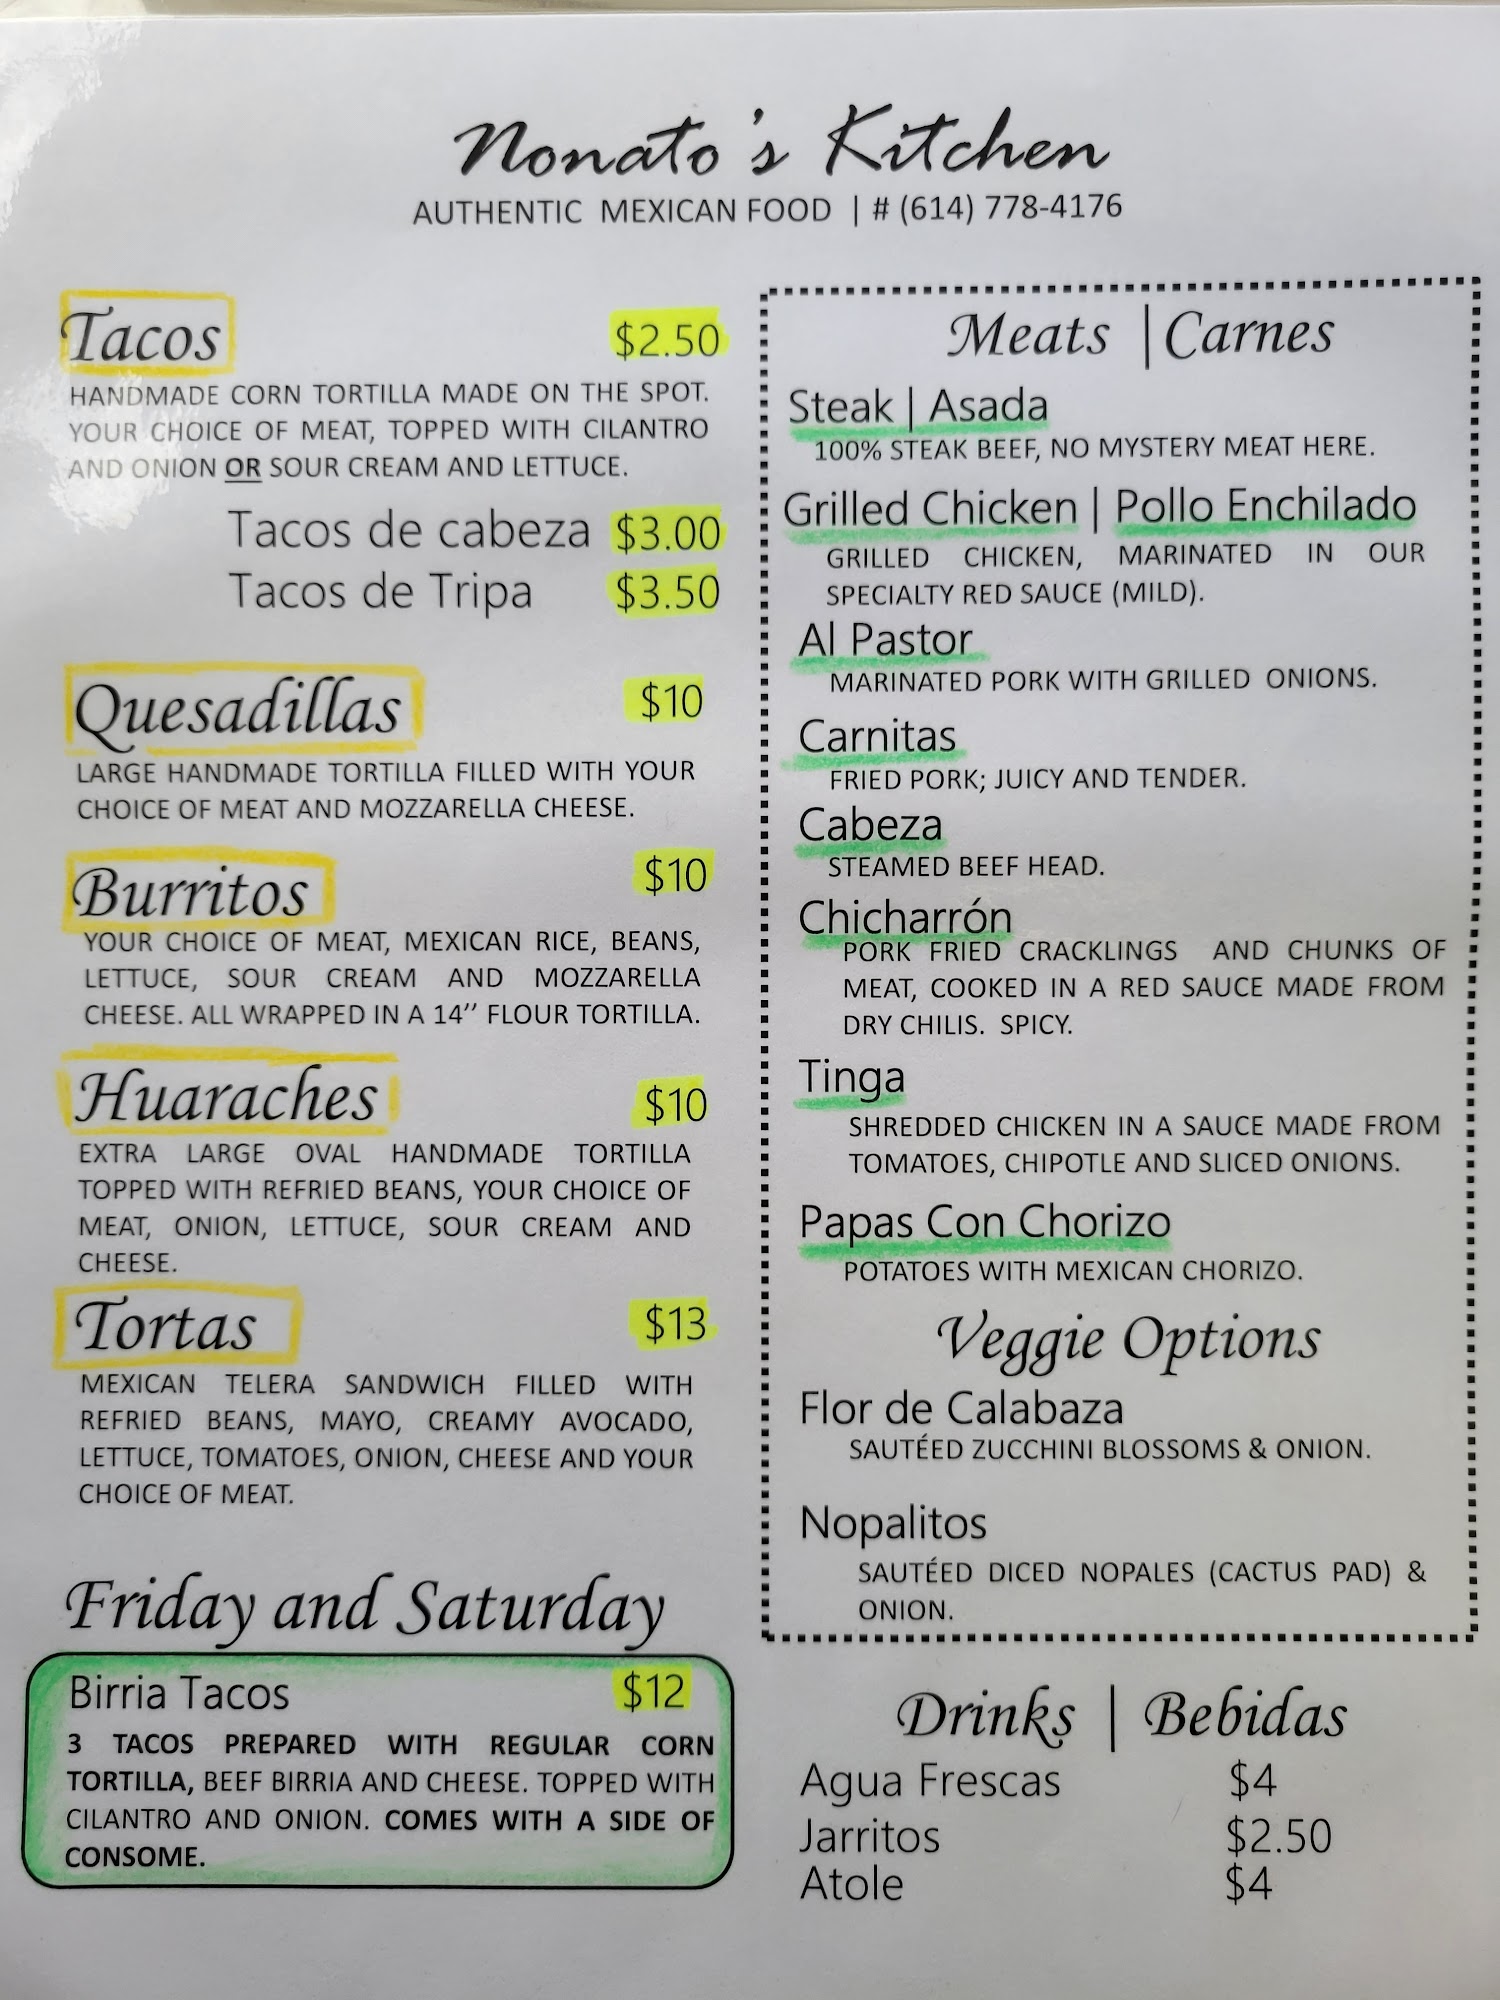 Nonato's Kitchen
AUTHENTIC MEXICAN FOOD | # (614) 778-4176
Tacos $2.50
HANDMADE CORN TORTILLA MADE ON THE SPOT.
YOUR CHOICE OF MEAT, TOPPED WITH CILANTRO
AND ONION OR SOUR CREAM AND LETTUCE.
Tacos de cabeza $3.00
Tacos de Tripa $3.50
Quesadillas $10
LARGE HANDMADE TORTILLA FILLED WITH YOUR
CHOICE OF MEAT AND MOZZARELLA CHEESE.
Burritos $10
YOUR CHOICE OF MEAT, MEXICAN RICE, BEANS,
LETTUCE, SOUR CREAM AND MOZZARELLA
CHEESE. ALL WRAPPED IN A 14’’ FLOUR TORTILLA.
Huaraches $10
EXTRA LARGE OVAL HANDMADE TORTILLA
TOPPED WITH REFRIED BEANS, YOUR CHOICE OF
MEAT, ONION, LETTUCE, SOUR CREAM AND
CHEESE.
Tortas $13
MEXICAN TELERA SANDWICH FILLED WITH
REFRIED BEANS, MAYO, CREAMY AVOCADO,
LETTUCE, TOMATOES, ONION, CHEESE AND YOUR
CHOICE OF MEAT.
Friday and Saturday
Birria Tacos $12
3 TACOS PREPARED WITH REGULAR CORN
TORTILLA, BEEF BIRRIA AND CHEESE. TOPPED WITH
CILANTRO AND ONION. COMES WITH A SIDE OF
CONSOME.
Meats | Carnes
Steak | Asada
100% STEAK BEEF, NO MYSTERY MEAT HERE.
Grilled Chicken | Pollo Enchilado
GRILLED CHICKEN, MARINATED IN OUR
SPECIALTY RED SAUCE (MILD).
Al Pastor
MARINATED PORK WITH GRILLED ONIONS.
Carnitas
FRIED PORK; JUICY AND TENDER.
Cabeza
STEAMED BEEF HEAD.
Chicharrón
PORK FRIED CRACKLINGS AND CHUNKS OF
MEAT, COOKED IN A RED SAUCE MADE FROM
DRY CHILIS. SPICY.
Tinga
SHREDDED CHICKEN IN A SAUCE MADE FROM
TOMATOES, CHIPOTLE AND SLICED ONIONS.
Papas Con Chorizo
POTATOES WITH MEXICAN CHORIZO.
Veggie Options
Flor de Calabaza
SAUTÉED ZUCCHINI BLOSSOMS & ONION.
Nopalitos
SAUTÉED DICED NOPALES (CACTUS PAD) &
ONION.
Drinks | Bebidas
Agua Frescas $4
Jarritos $2.50
Atole $4